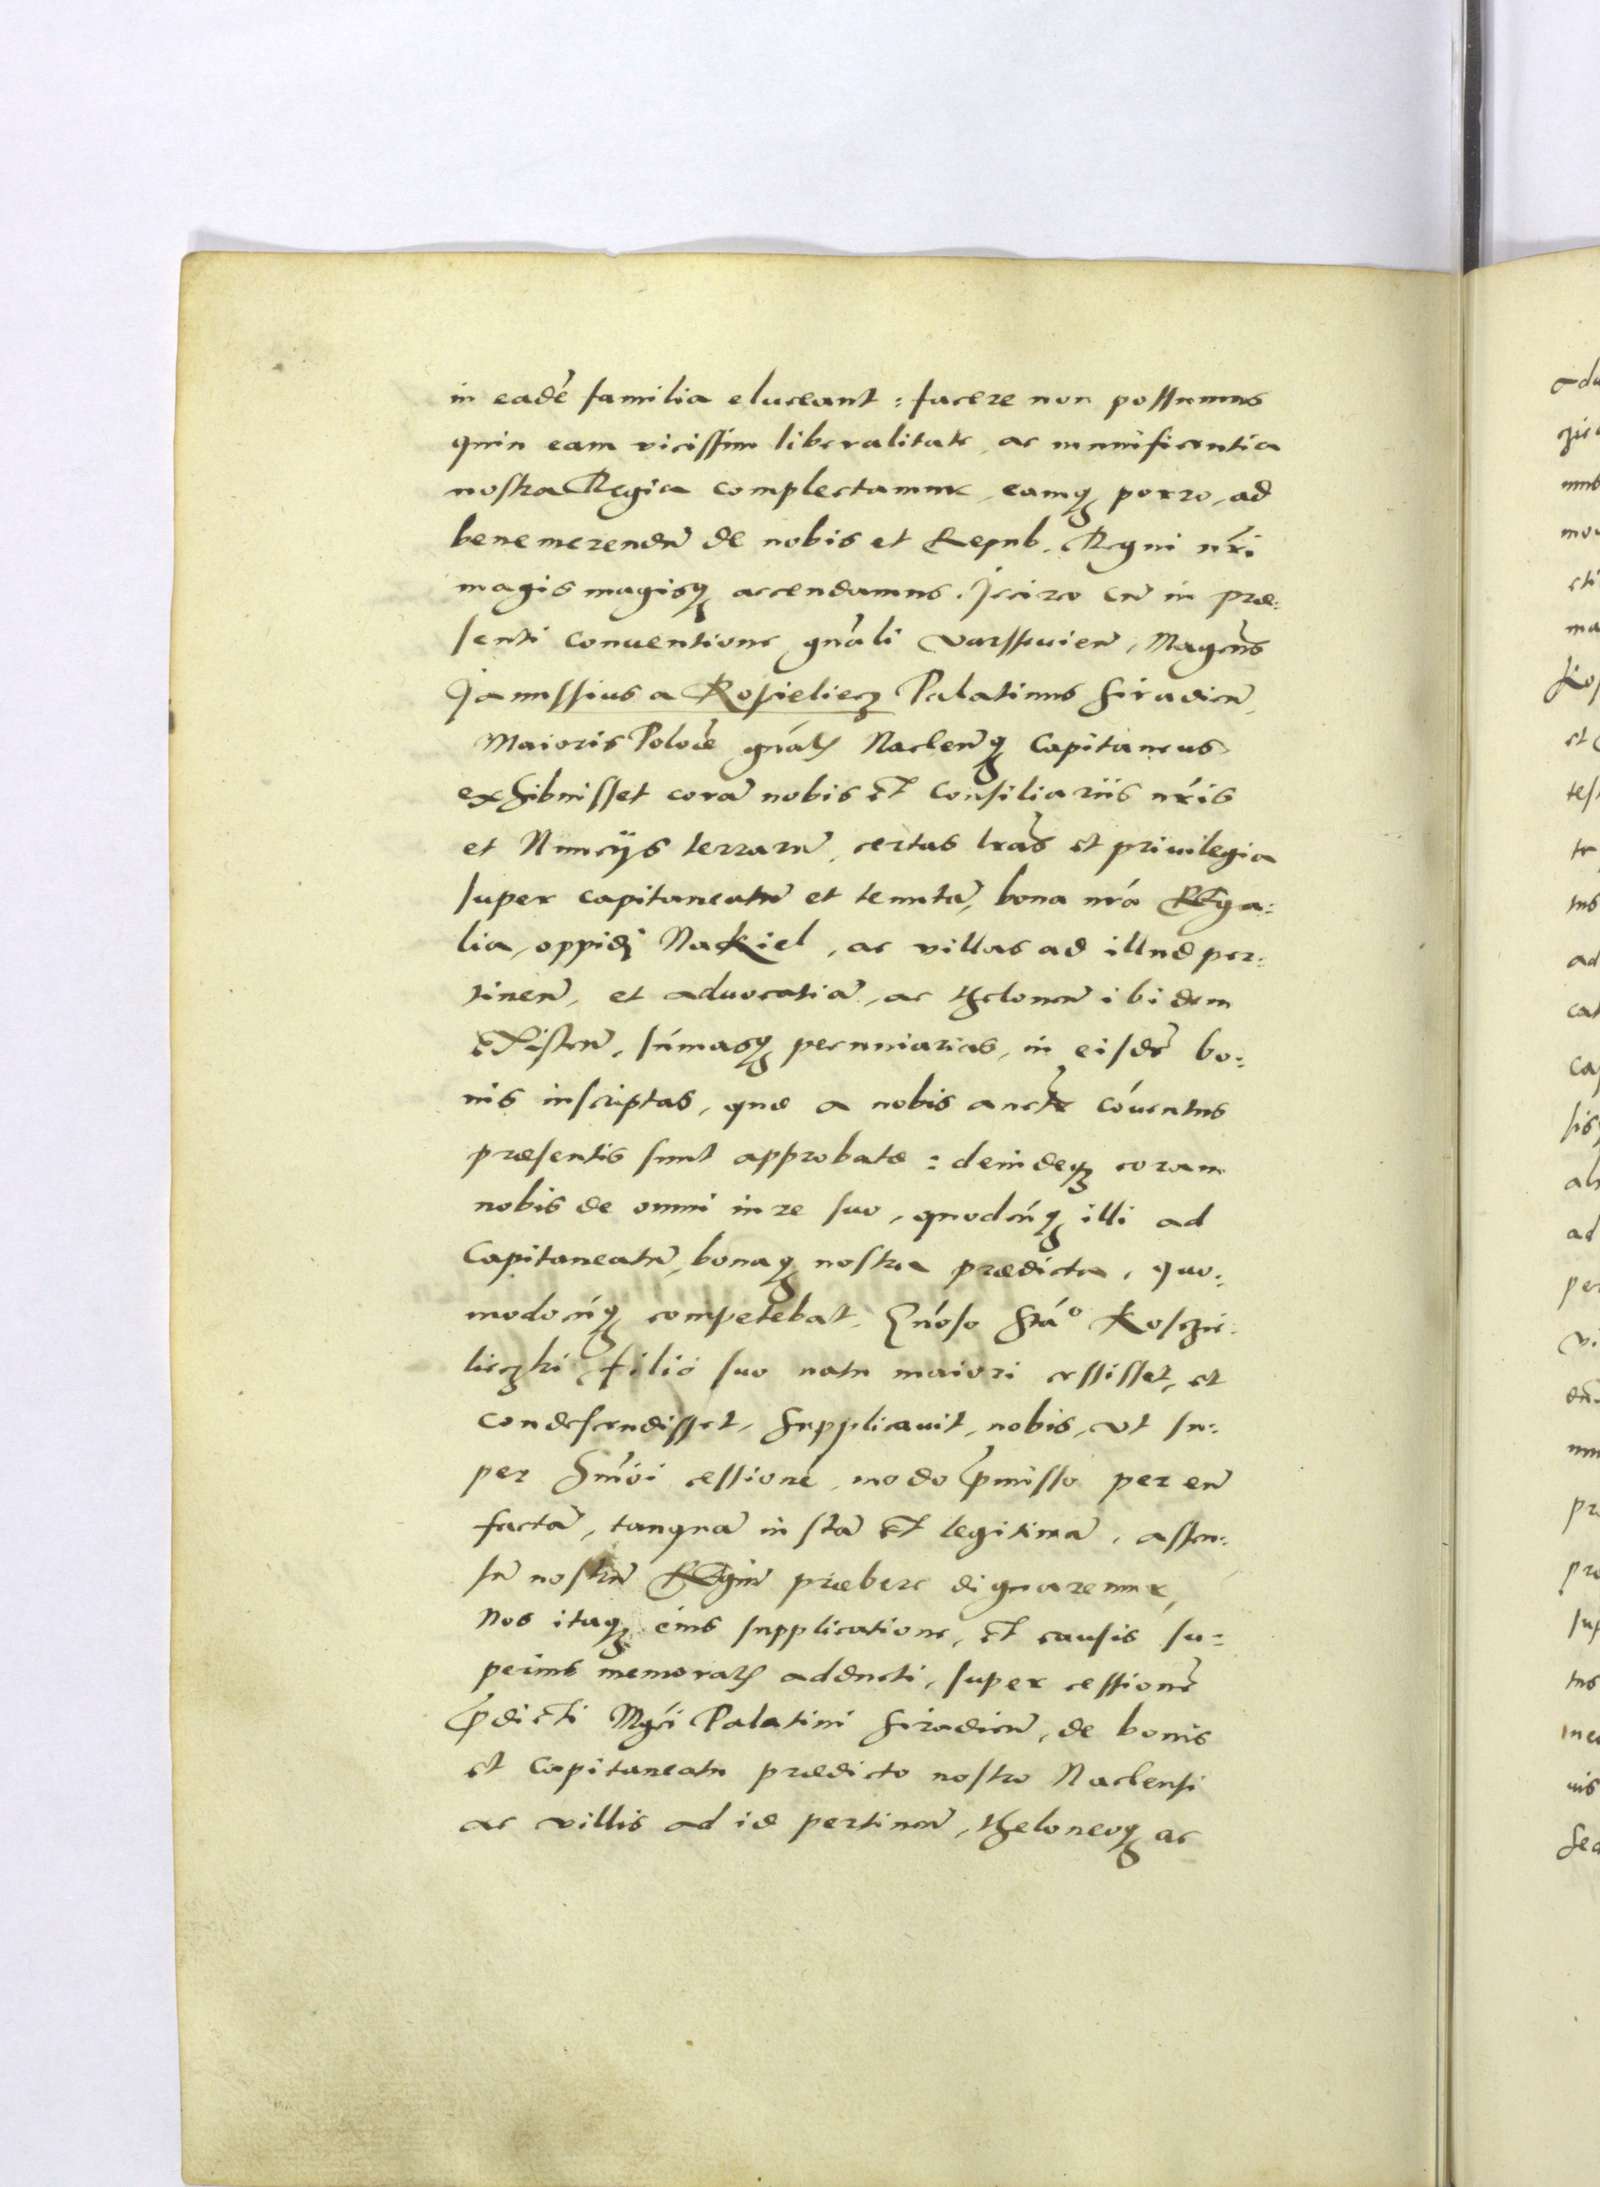 in eadē familia eluceant : facere non possumus
quin eam vicissim liberalitate, ac munificentia
nostra Regia complectamur, eamqȝ porro, ad
bene merendū de nobis et Repub. Regni nr̄i
magis magisqȝ accendamus. Iccirco cū in præ:
senti conventione gn̄ali Varssovien̄, Magcus
Janussius a Kosieliecz Palatinus Siradien̄,
Maioris Poloē gn̄alis Naclen̄qȝ Capitaneus
exhibuisset corā nobis et Consiliariis nr̄is
et Nuncijs terrarū, certas lr̄as et privilegia
super capitaneatū et tenutā, bona nr̄a Rega:
lia, oppidi Nakiel, ac villas ad illud per:
tinen̄, et advocatiā, ac theloneū ibidem
existen̄, sūmasqȝ pecuniarias, in eisdē bo:
nis inscriptas, quæ a nobis auctē cōventus
præsentis sunt approbatæ : deindeqȝ coram
nobis de omni iure suo, quodcūqȝ illi ad
Capitaneatū, bonaqȝ nostra prædicta, quo:
modocūqȝ competebat, Gn̄oso Stāo Koscie:
lieczki, filio suo natu maiori cessisset, et
condescendisset, supplicavit, nobis, ut su:
per hm̄oi cessionē, modo p̄misso per eū
factā, tanquā iustā et legitimā, assen:
sū nostrū Regiū præbere dignaremur,
Nos itaqȝ eius supplicatione, et causis su:
perius memoratis adducti, super cessionē
p̄dicti Mgci Palatini Siradien̄, de bonis
et Capitaneatu prædicto nostro Naclensi
ac villis ad id pertinen̄, theloneoqȝ ac